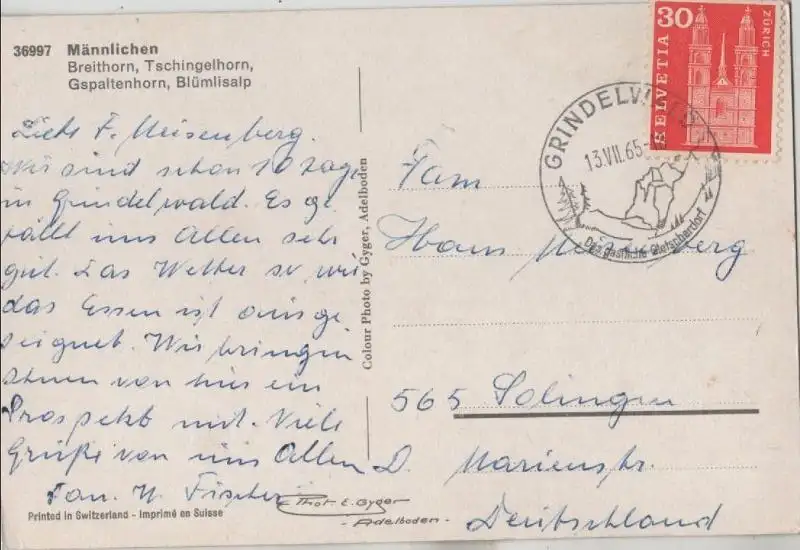 36997 Männlichen
Breithorn, Tschingelhorn,
Gspaltenhorn, Blümlisalp
Liebe F. Meisenberg.
Wir sind schon 10 Tage
in Grindelwald. Es ge
fällt uns Allen sehr
gut. Das Wetter so wie
das Essen ist ausge
zeignet. Wir bringen
Ihnen von hier ein
Prospekt mit. Viele
Grüße von uns Allen
Fam. W. Fischer
Printed in Switzerland - Imprimé en Suisse
Colour Photo by Gyger, Adelboden
Phot. E. Gyger
- Adelboden -
30
HELVETIA
ZÜRICH
GRINDELWALD
13.VII.65-
Das gastliche Gletscherdorf
Fam
Hans
565 Solingen
D. Marienstr.
Deutschland